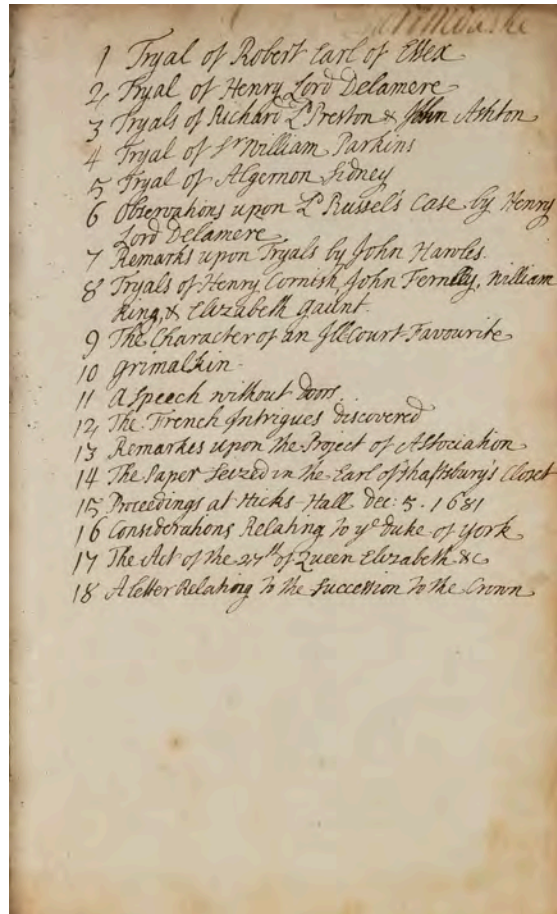 1 Tryal of Robert Earl of Essex
2 Tryal of Henry Lord Delamere
3 Tryals of Richard Ld Preston & John Ashton
4 Tryal of Sr William Parkins
5 Tryal of Algernon Sidney
6 Observations upon Ld Russel's Case by Henry
Lord Delamere
7 Remarks upon Tryals by John Hawles.
8 Tryals of Henry Cornish, John Fernley, William
King, & Elizabeth Gaunt.
9 The Character of an Ill Court-Favourite
10 Grimalkin.
11 A Speech without Doors.
12 The French Intrigues discovered
13 Remarkes upon the Project of Association
14 The Paper Seized in the Earl of Shaftsbury's Closet
15 Proceedings at Hicks-Hall Dec: 5. 1681
16 Considerations Relating to ye Duke of York
17 The Act of the 27th of Queen Elizabeth &c
18 A Letter Relating to the Succession to the Crown